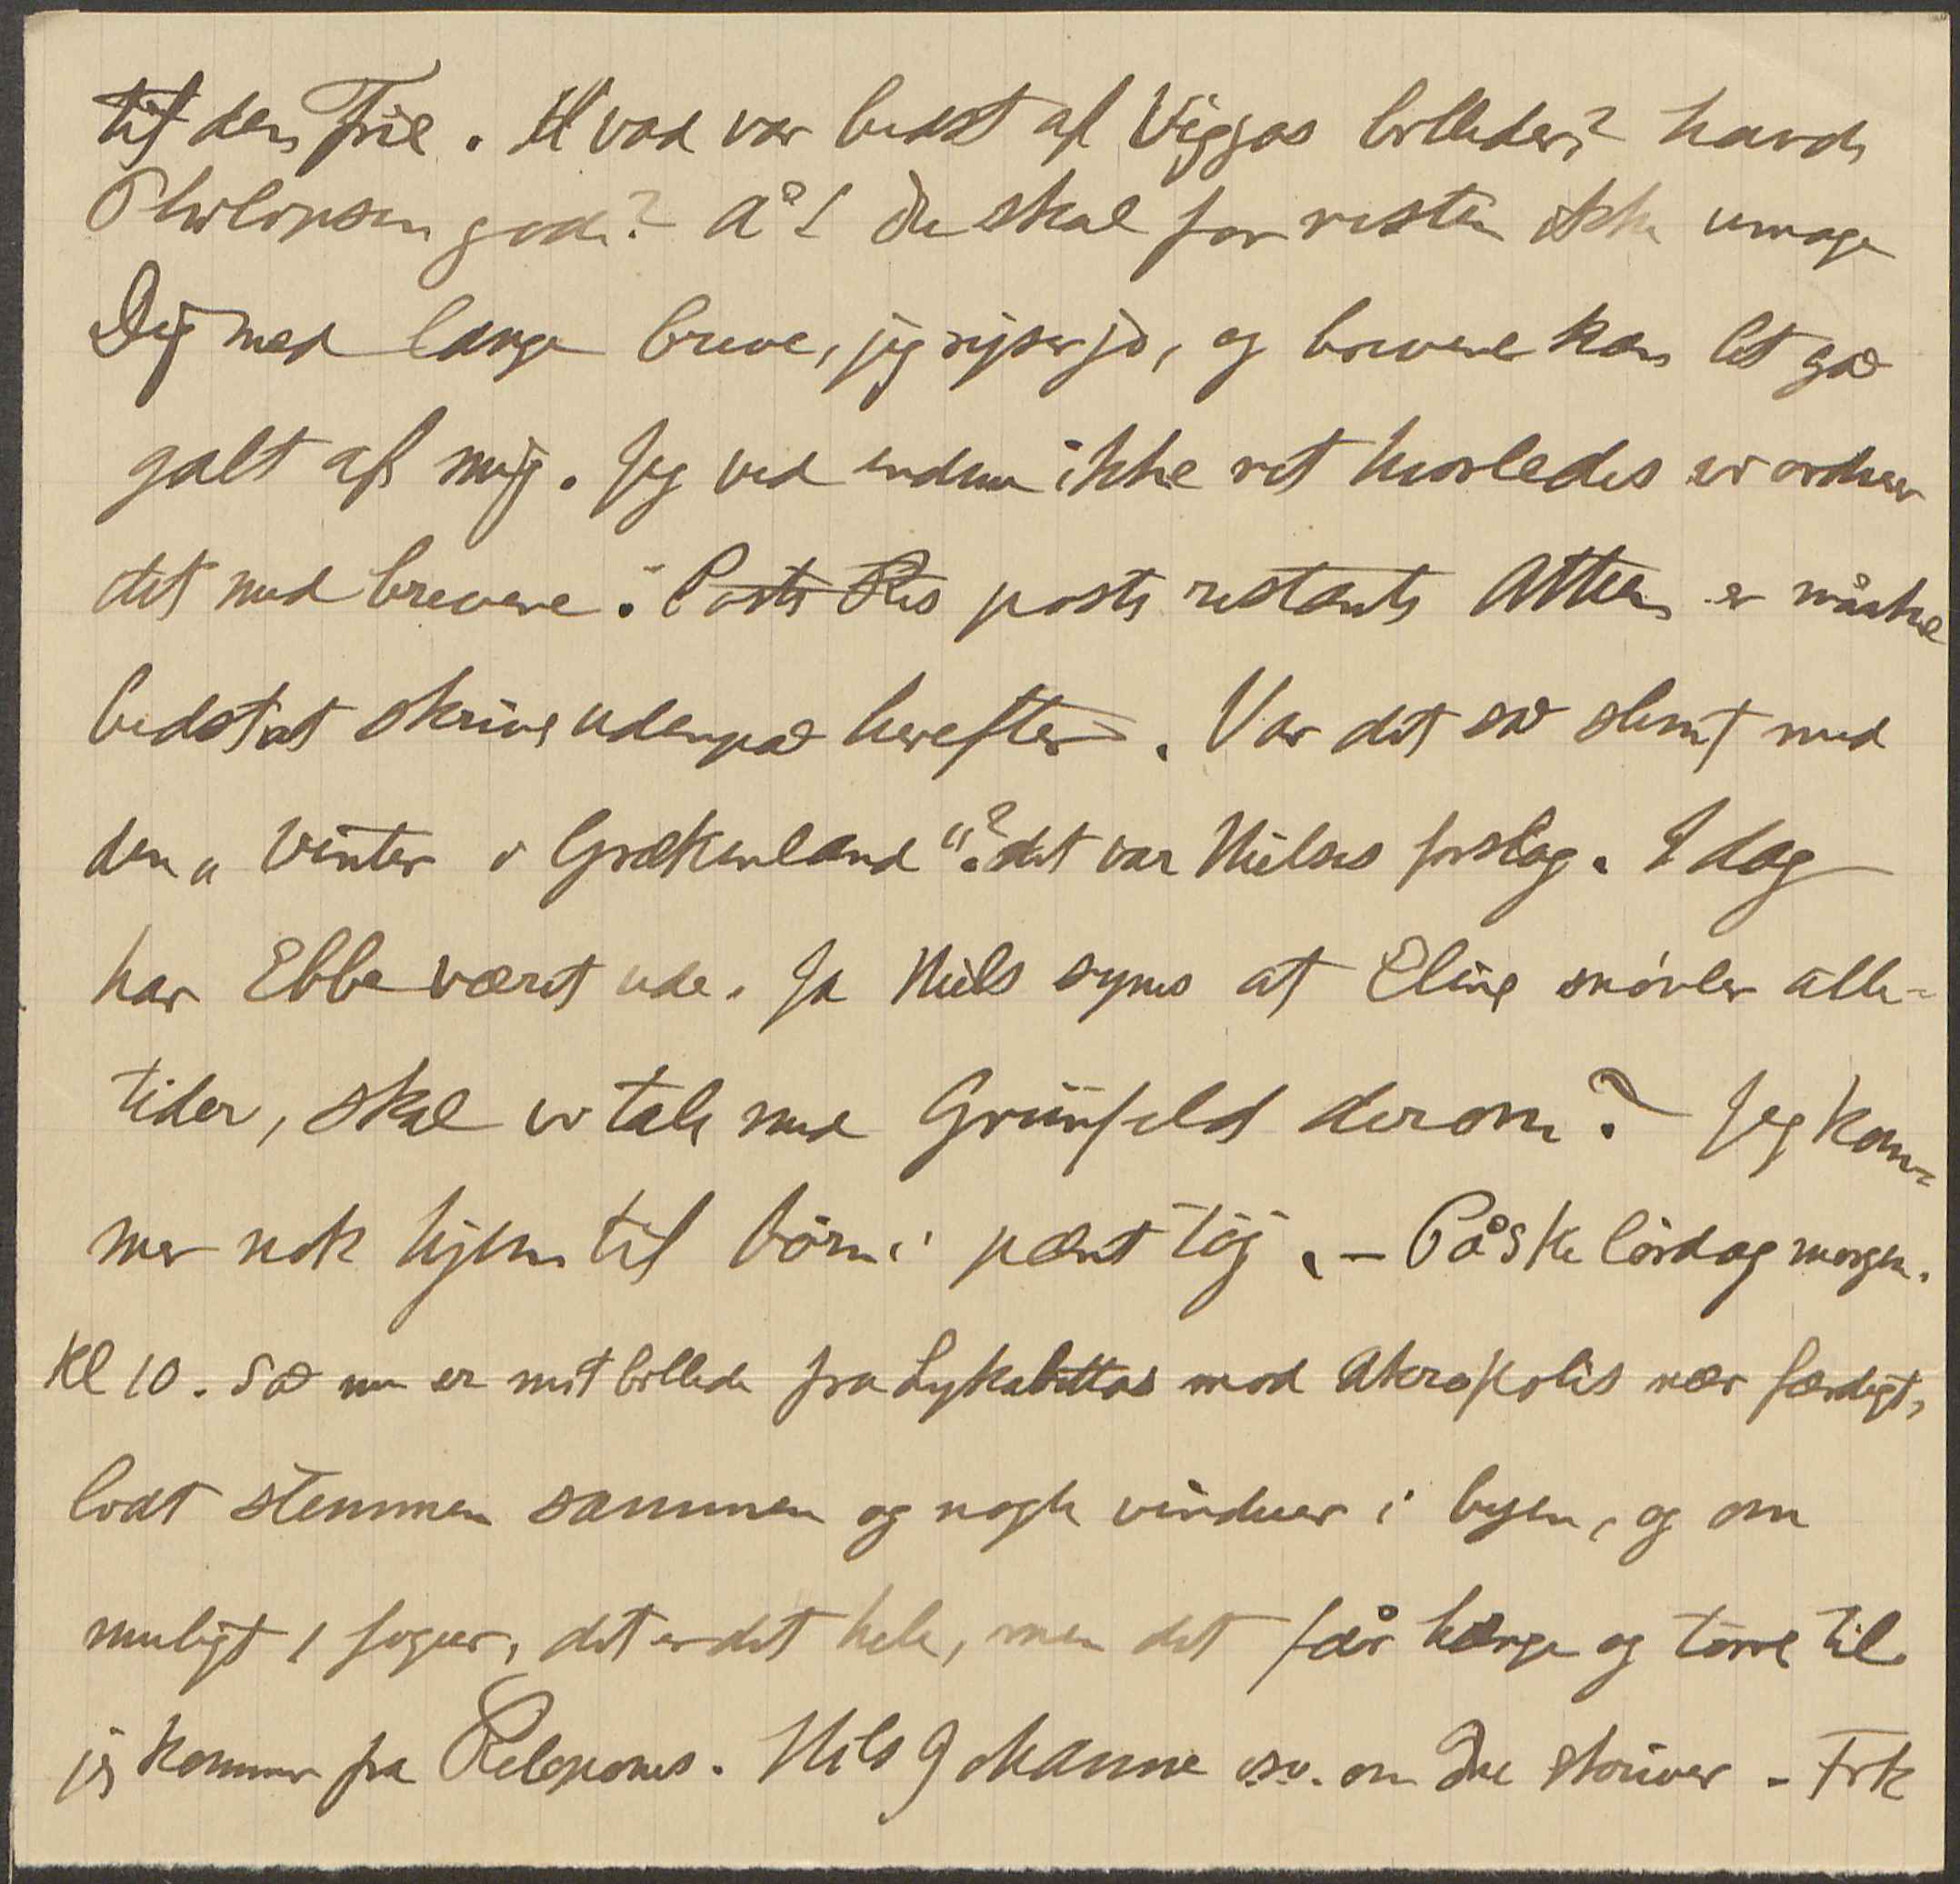 til den Frie. Hvad var bedst af Viggos billeder? havde
Philipsen gode? Å! Du skal for resten ikke umage
Dig med lange breve, jeg rejser jo, og brevene kan let gå
galt af mig. Jeg ved endnu ikke ret hvorledes vi ordner
det med brevene. Poste Res poste restante Athen er måske
bedst at skrive udenpå herefter. Var det så slemt med
den "Vinter i Grækenland"? det var Nielses forslag. I dag
har Ebbe været ude. Ja Niels synes at Eline snøvler alle-
tider, skal vi tale med Grünfeld derom? Jeg kom-
mer nok hjem til børn i pænt tøj. - Påske lørdag morgen.
Kl 10. Så nu er mit billede fra Lykabettos mod Akropolis nær færdigt,
lidt stemmen sammen og nogle vinduer i byen, og om
muligt 1 figur, det er det hele, men det får hænge og tørre til
jeg kommer fra Pelopones. Hils Johanne osv. om Du skriver - Frk